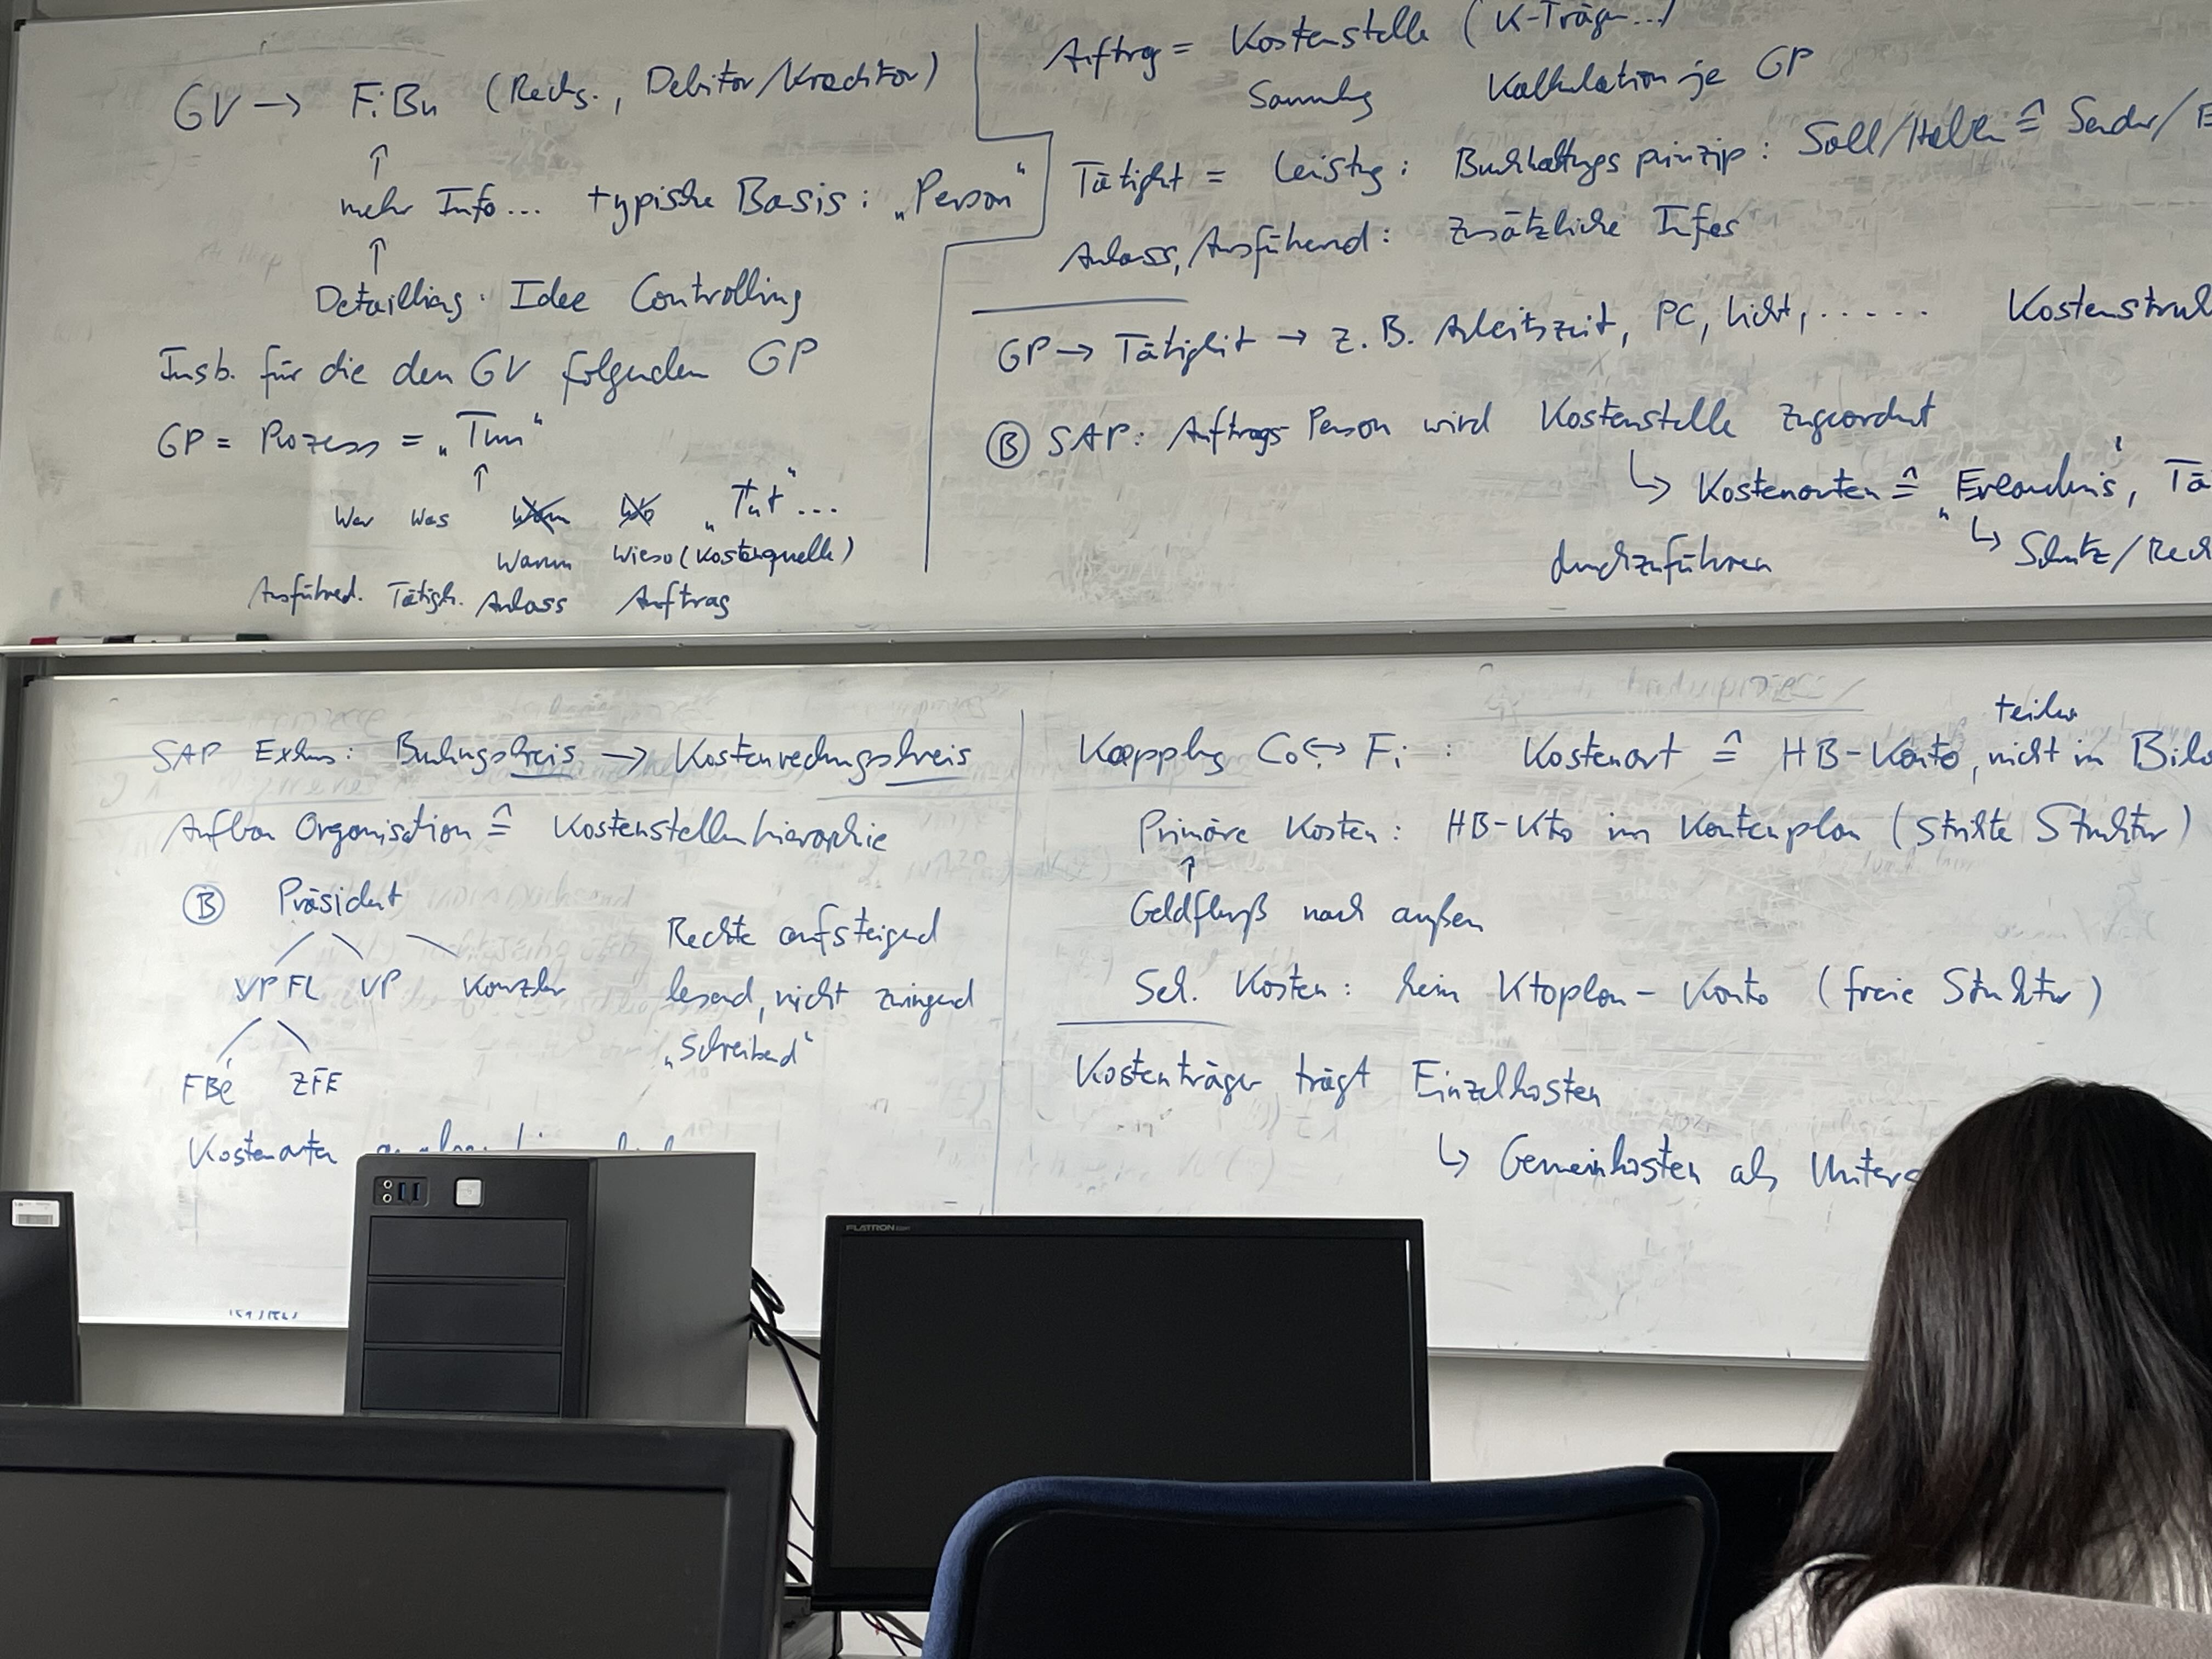 GV → FiBu (Rechg., Debitor/Kreditor)
↑
mehr Info... typische Basis: „Person“
↑
Detaillierg. Idee Controlling
Insb. für die den GV folgenden GP
GP = Prozess = „Tun“
↑
Wer Was „Tut“...
Warum Wieso (Kostenquelle)
Ausführed. Tätigk. Anlass Auftrag
Auftrag = Kostenstelle (K-Träger...)
Sammlg Kalkulation je GP
Tätigkt = Leistg: Buchhaltgs prinzip: Soll/Haben ≙ Sender/E
Anlass, Ausführend: zusätzliche Infos
GP → Tätigkeit → z.B. Arbeitszeit, PC, Licht, ..... Kostenstruk
Ⓑ SAP: Auftrags Person wird Kostenstelle zugeordnet
↳ Kostenarten ≙ „Erlaubnis“, Tä
↳ Schutz/Rech
durchzuführen
SAP Exkurs: Buchungskreis → Kostenrechnungskreis
Aufbau Organisation ≙ Kostenstellenhierarchie
Ⓑ Präsident
VP FL VP Kanzler
FBe ZFE
Rechte aufsteigend
lesend, nicht zwingend
„schreibend“
Kostenarten
teilw
Kopplg Co ↔ Fi : Kostenart ≙ HB-Konto, nicht in Bila
Primäre Kosten: HB-Kto im Kontenplan (strikte Struktur)
↑
Geldfluß nach außen
Sek. Kosten: kein Ktoplan-Konto (freie Struktur)
Kostenträger trägt Einzelkosten
↳ Gemeinkosten als Unters
FLATRON